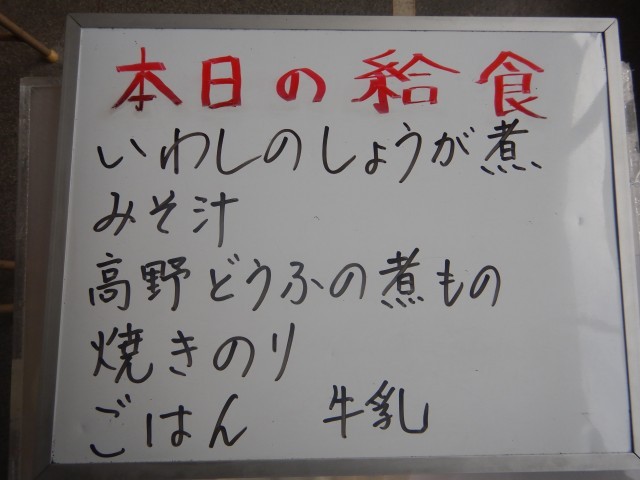 本日の給食
いわしのしょうが煮
みそ汁
高野どうふの煮もの
焼きのり
ごはん　牛乳